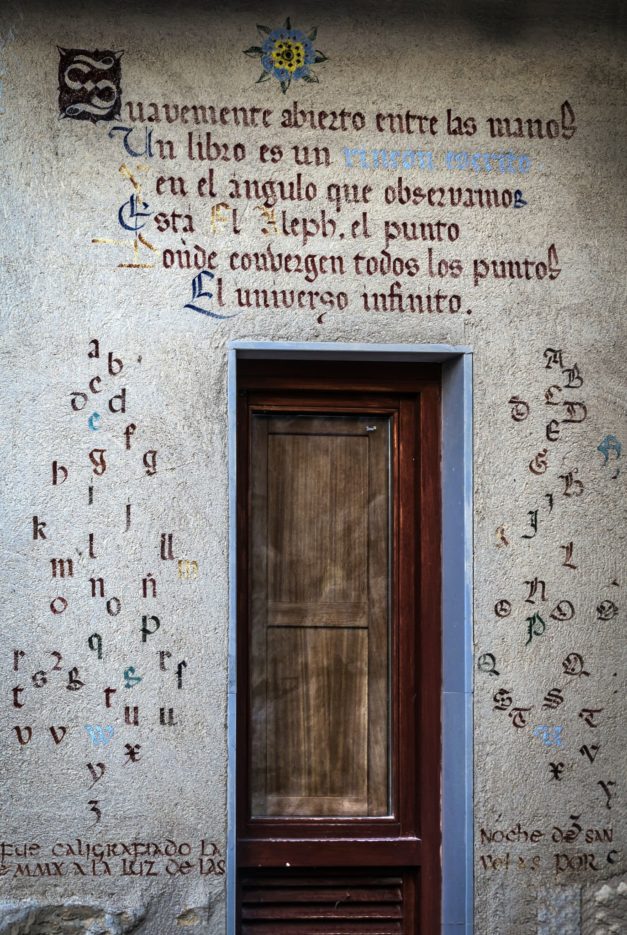 Suavemente abierto entre las manos
Un libro es un rincon escrito
Y en el angulo que observamos
Esta El Aleph, el punto
Donde convergen todos los puntos
El universo infinito.
a
b
c
d d
e
f
g g
h
i
j
k
l ll
m m
n ñ
o o
p
q
r s 2 s s r s
t t
u u
v v w
x
y
z
A
B
C
D D
E
G
H
B
J
L
N
O O
P
Q Q
S S
T T
U
V
X
Y
Z
FUE CALIGRAFIADO LA
MMX A LA LUZ DE LAS
NOCHE DE SAN
VELAS POR C